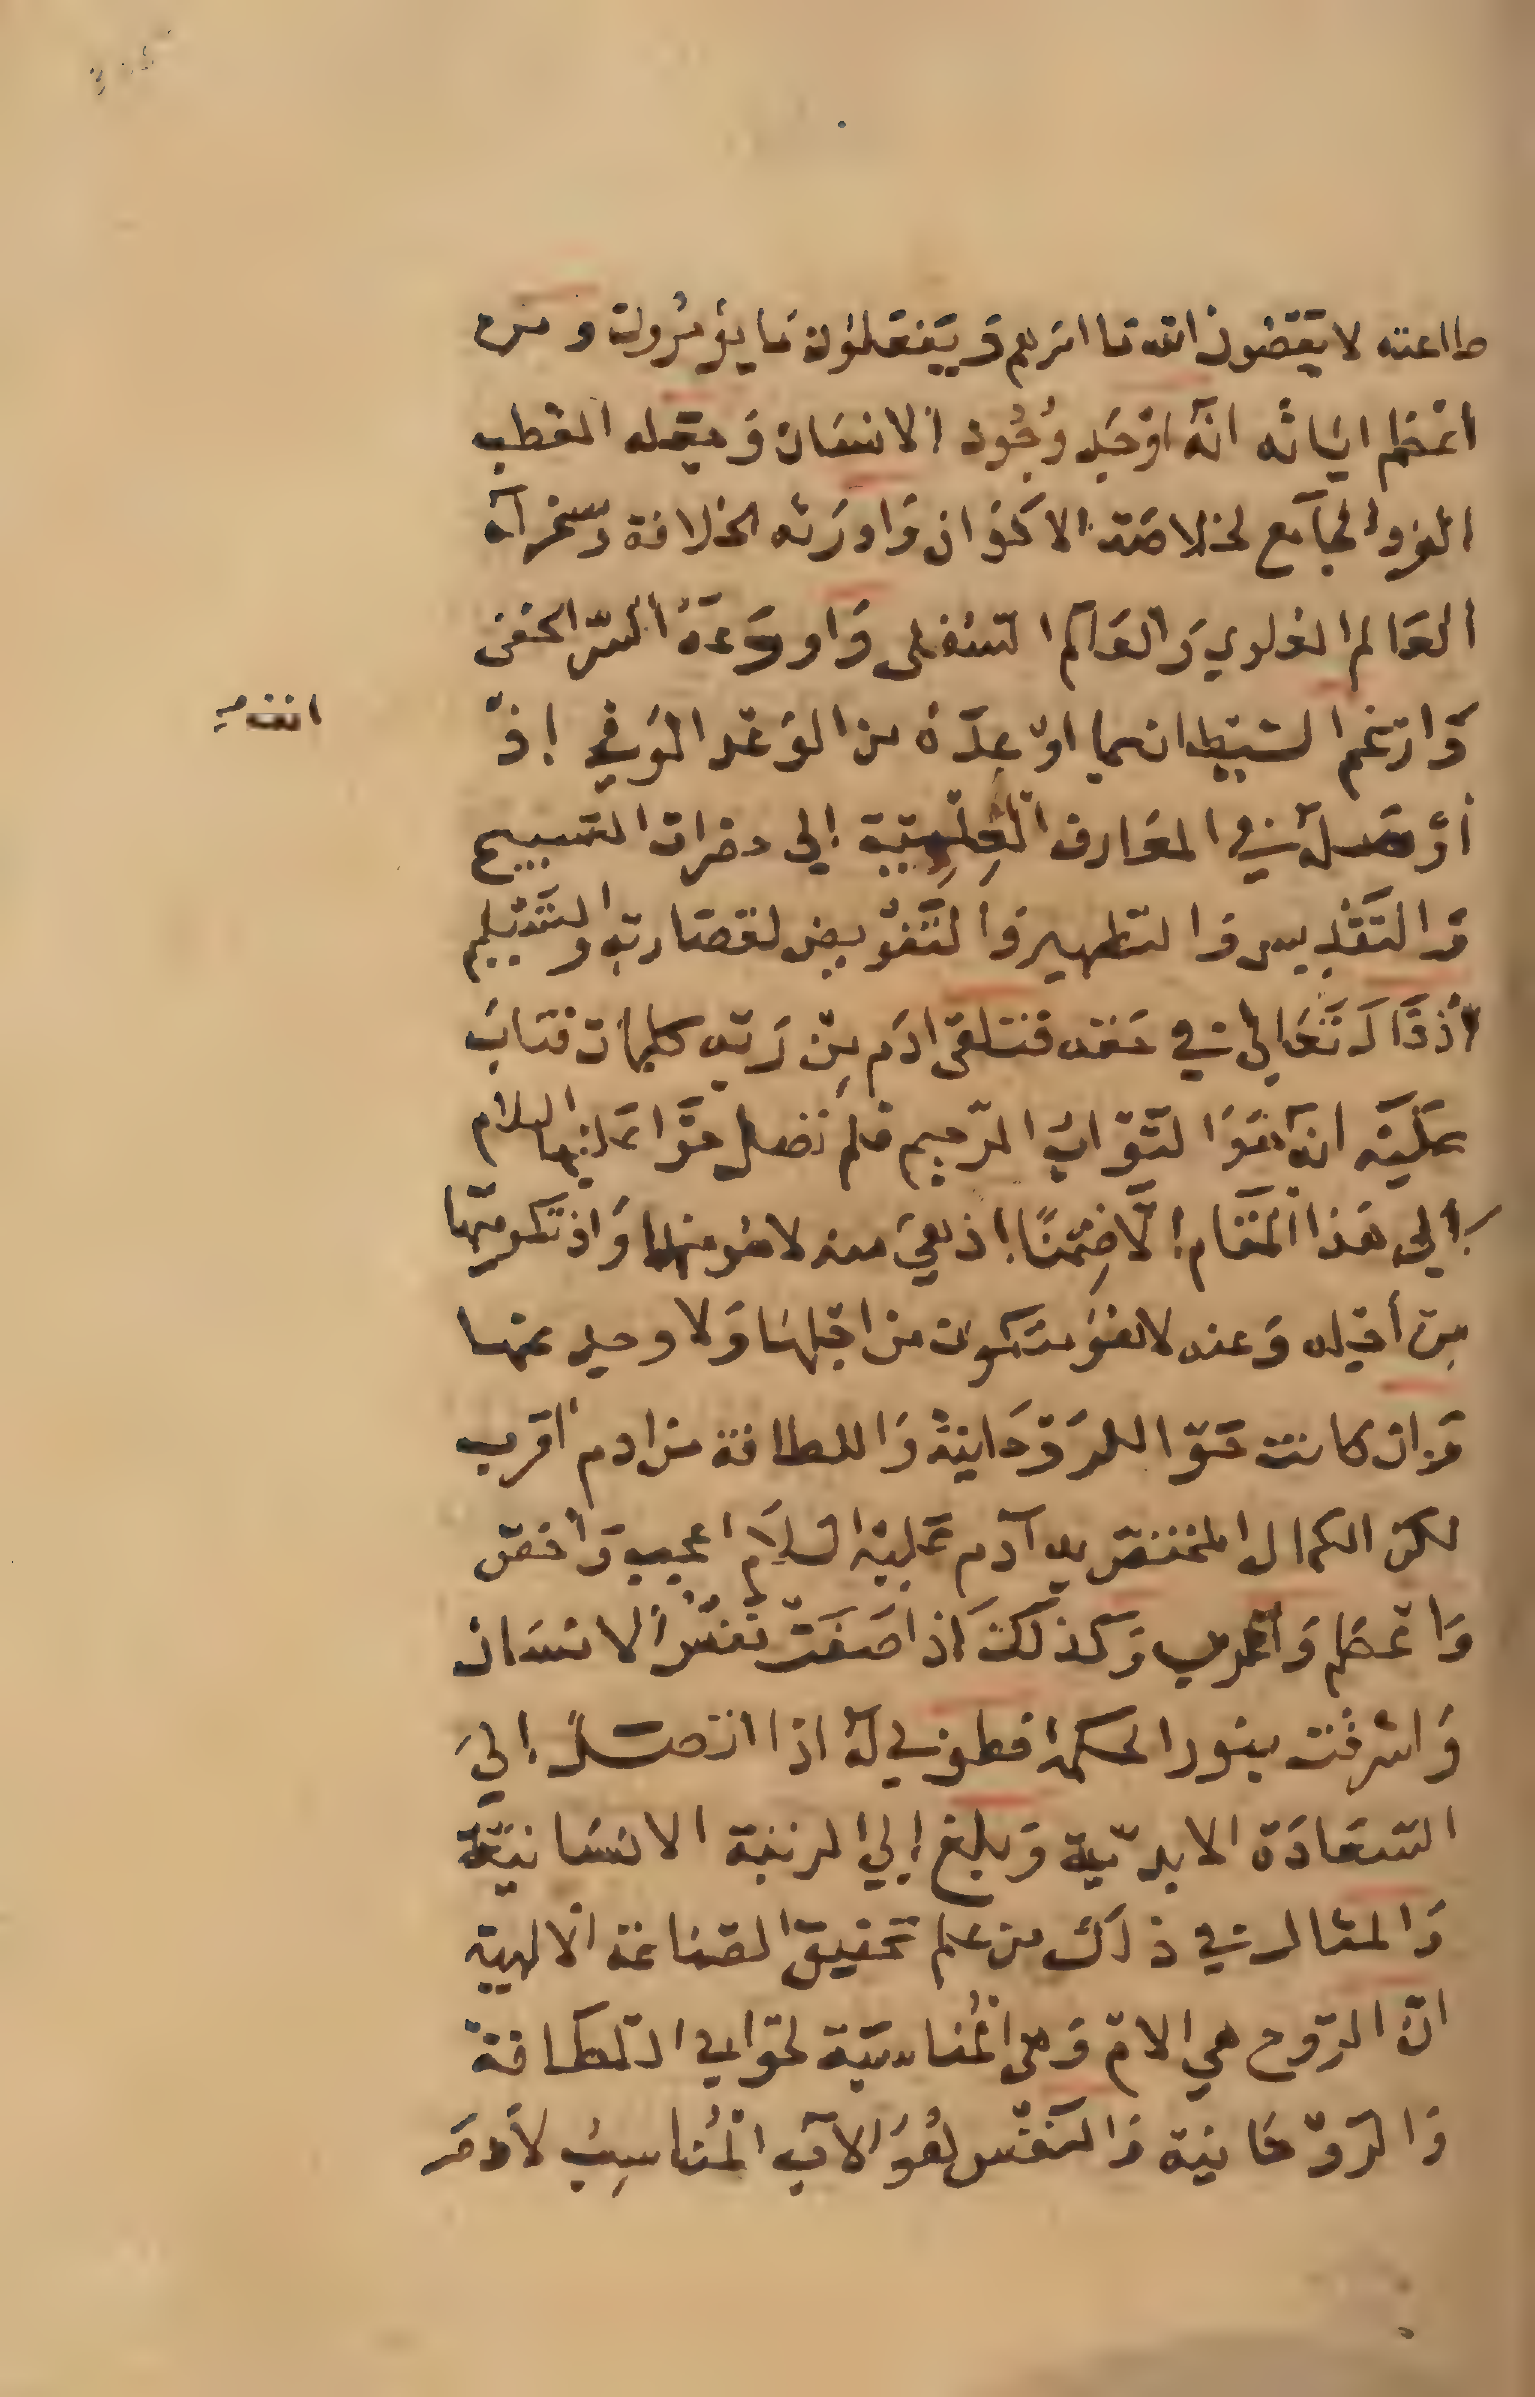 طاعته لا يعصون الله ما امرهم وَ يَفعَلوُن مَا يؤمرُون و من
اعظم ايَاته انّه اوْجَد وُجُود الانسَان وَ جعله القطب
الفرد الجَامع لخلاصَة الاكوَان وَاورَثه الخلافة وسخر له
العَالم العلوي وَالعَالم السّفلى وَاودَعَهُ السّر الخفى
وَارغم الشيطان بما اوعدَهُ من الوَعْد الوَفي اذْ
أوْصَله في المعَارف العِلميّة إلى حضرات التسبيح
وَالتَقْديس وَالتطهير وَالتَفْويض لقضَا ربّه وَالتَسْليم
اذ قَالَ تَعَالى في حَقه فتلقى ادَم مِنْ رَبّه كلمَات فتَابَ
عَليَه انه هُوَ التَوّابُ الرّحيم فلم تصل حَوّا عَليْها السلام
إلى هَذا المَقام إلّا ضِمْنًا إذ هيَ منه لا هُو منها وَاذ تكويْنها
مِن أجله وَعنه لا هُوَ متكون من اجلهَا وَلا وجد عنها
وَان كانت حَوّا للرَوْحَانيَة وَاللطافة من ادم اقرَب
لكن الكمال المختص به آدم عَليْه السَلَام اعجب وَاخفى
وَاعظم وَاغرب وَكذلكَ اذا صَفَتْ نَفسُ الانسَان
وَاشرقت بنور الحكمة فطوبى لهُ اذا اتصَلَ إلىَ
السّعَادَة الابديّة وَبلغ إلىَ المرتبة الانسَانيّة
وَالمثال في ذلكَ من علم تحقيق الصّناعَة الالهية
انّ الرّوح هي الامّ وَهي المُناسبَة لحَوّا في اللطَافة
وَالرّوْحَانية وَالنَفْس هُوَ الاَب المُناسِبُ لآدَم